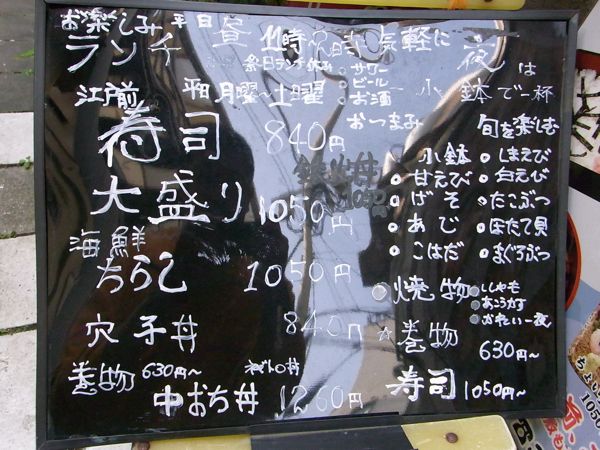 お楽しみ 平日
ランチ 昼 11時 気軽に 夜は
祭日ランチ休み
江戸前 平日 月曜~土曜
寿司 840円
大盛り 1050円
海鮮
ちらし 1050円
穴子丼 840円
巻物 630円~ ねぎとろ丼
中おち丼 1260円
サワー
ビール
お酒
小鉢で一杯
おつまみ 旬を楽しむ
小鉢
甘えび
げそ
あじ
こはだ
しまえび
白えび
たこぶつ
ほたて貝
まぐろぶつ
焼物
ししゃも
巻物
630円~
寿司 1050円~
1050